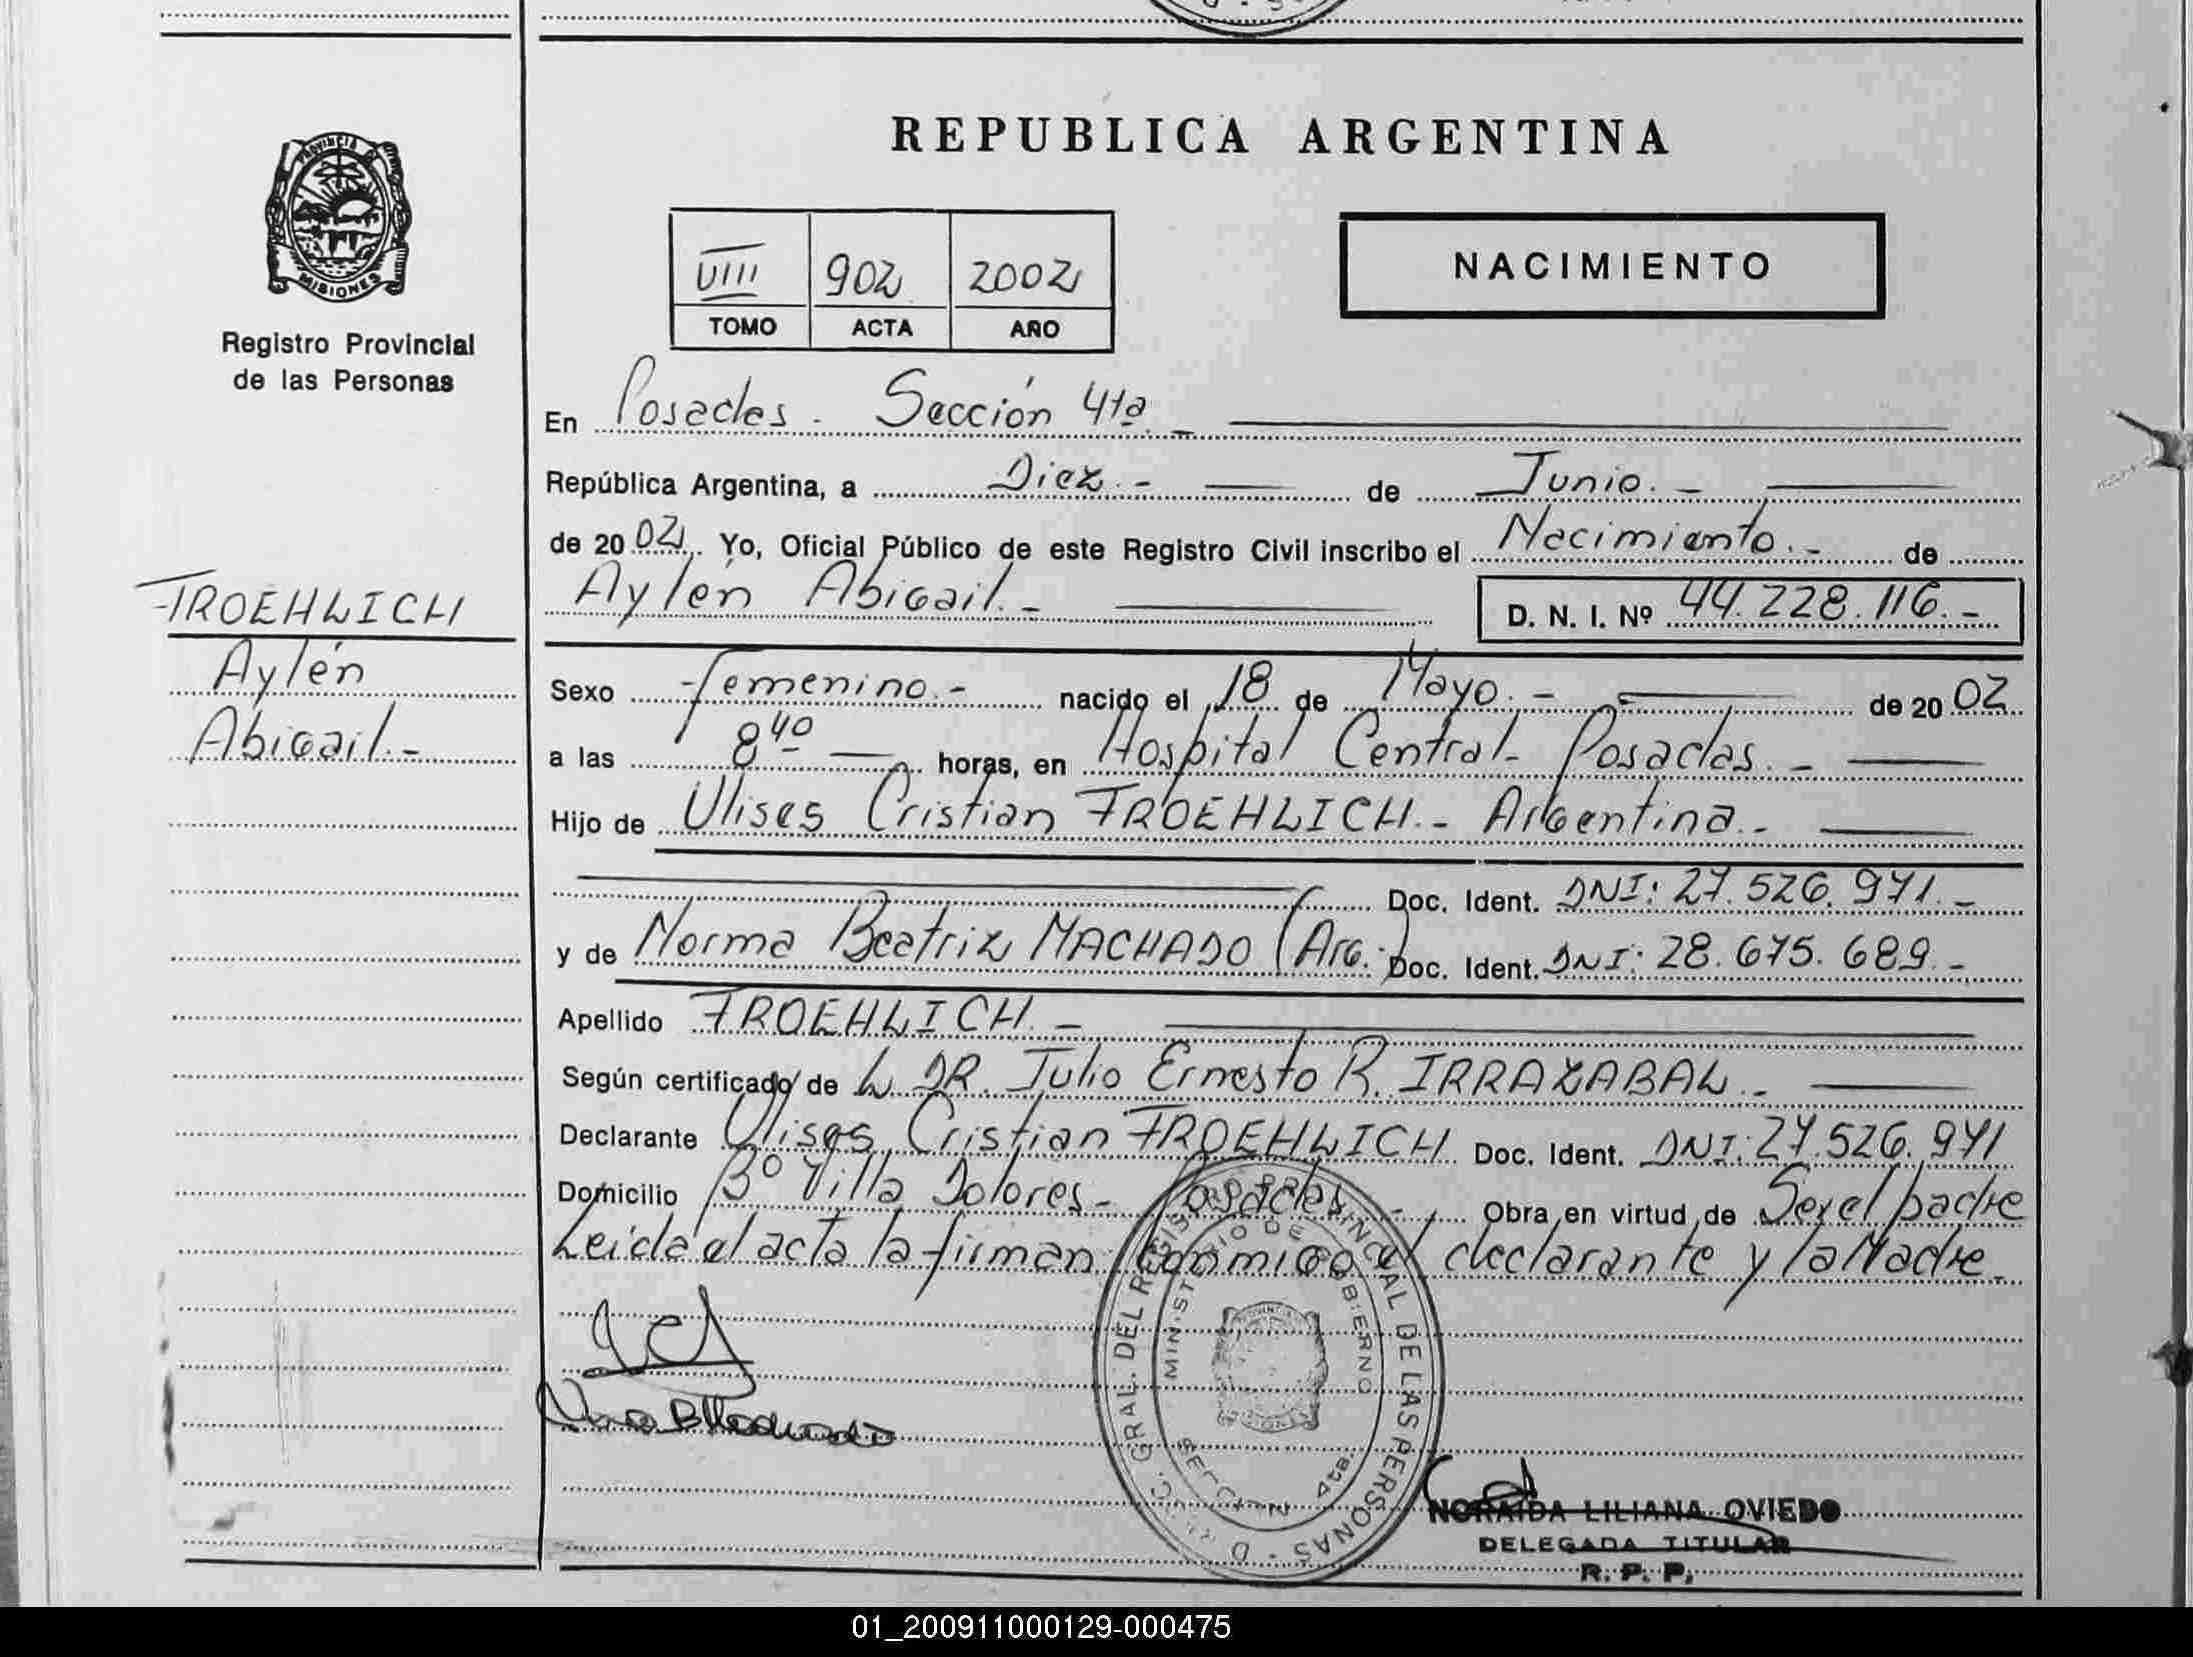 REPUBLICA ARGENTINA
PROVINCIA DE
MISIONES
Registro Provincial
de las Personas
VIII 902 2002
TOMO ACTA AÑO
NACIMIENTO
En Posadas - Sección 4ta. -
República Argentina, a Diez.- de Junio.-
de 2002. Yo, Oficial Público de este Registro Civil inscribo el Nacimiento.- de
Aylén Abigail.- D. N. I. Nº 44.228.116.-
FROEHLICH
Aylén
Abigail.-
Sexo femenino.- nacido el 18 de Mayo.- de 2002
a las 8 40 horas, en Hospital Central - Posadas.-
Hijo de Ulises Cristian FROEHLICH.- Argentina.-
Doc. Ident. DNI: 27.526.971.-
y de Norma Beatriz MACHADO (Arg.) Doc. Ident. DNI: 28.675.689.-
Apellido FROEHLICH.-
Según certificado de L. DR. Julio Ernesto R. IRRAZABAL.-
Declarante Ulises Cristian FROEHLICH Doc. Ident. DNI: 27.526.971
Domicilio Bº Villa Dolores - Posadas.- Obra en virtud de Ser el padre
Leida el acta la firman conmigo el declarante y la Madre.
GRAL. DEL REGISTRO PROVINCIAL DE LAS PERSONAS
MINISTERIO DE GOBIERNO
SECCION 4ta.
NORAIDA LILIANA OVIEDO
DELEGADA TITULAR
R. P. P.
01_200911000129-000475